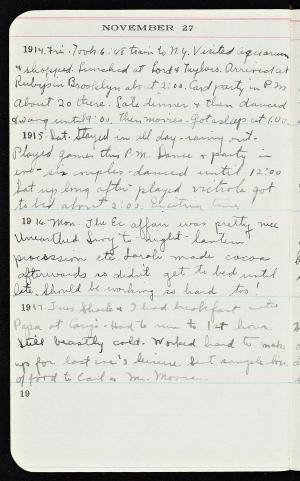 NOVEMBER 27
1914. Fri. Took 6:48 train to N.Y. Visited aquarium
& shopped. Lunched at Lord & Taylors. Arrived at
Rubys in Brooklyn about 2:00. Card party in P.M.
about 20 there. Late dinner & then danced
& sang until 9:00. Then movies. Got asleep at 1:00
1915. Sat. Stayed in all day - rainy out.
Played games this P.M. Dance & party in
eve - six couples - danced until 12:00
Sat up long after played victrola got
to bed about 2:00. Exciting time
1916 Mon. The Ec affair was pretty nice
Unearthed Ivory to-night - lantern
procession etc. Sarah made cocoa
afterwards so didn't get to bed until
late. Should be working so hard too!
1917. Tues & I had breakfast with
Papa at - Had to run to 1st hour.
Still beastly cold. Worked hard to make
up for last eve's leisure. Sent sample box
of food to Carl & Mr.
19